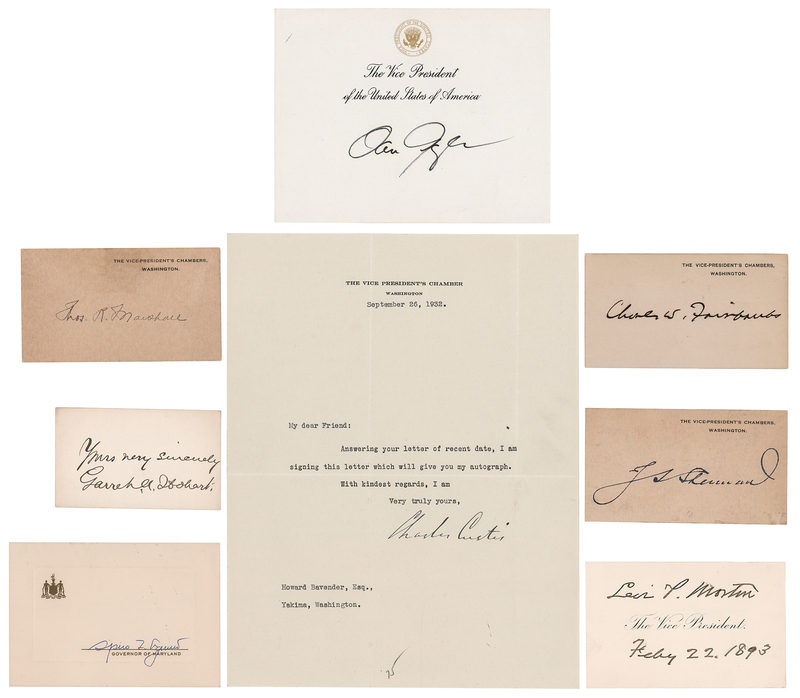 The Vice President
of the United States of America
THE VICE-PRESIDENT'S CHAMBERS,
WASHINGTON.
Thos. R. Marshall
Yours very sincerely
Garret A. Hobart.
Spiro T Agnew
GOVERNOR OF MARYLAND
THE VICE PRESIDENT'S CHAMBER
WASHINGTON
September 26, 1932.
My dear Friend:
Answering your letter of recent date, I am
signing this letter which will give you my autograph.
With kindest regards, I am
Very truly yours,
Charles Curtis
Howard Bavender, Esq.,
Yakima, Washington.
THE VICE-PRESIDENT'S CHAMBERS,
WASHINGTON.
Charles W. Fairbanks
THE VICE-PRESIDENT'S CHAMBERS,
WASHINGTON.
J S Sherman
Levi P. Morton
The Vice President.
Feby 22. 1893